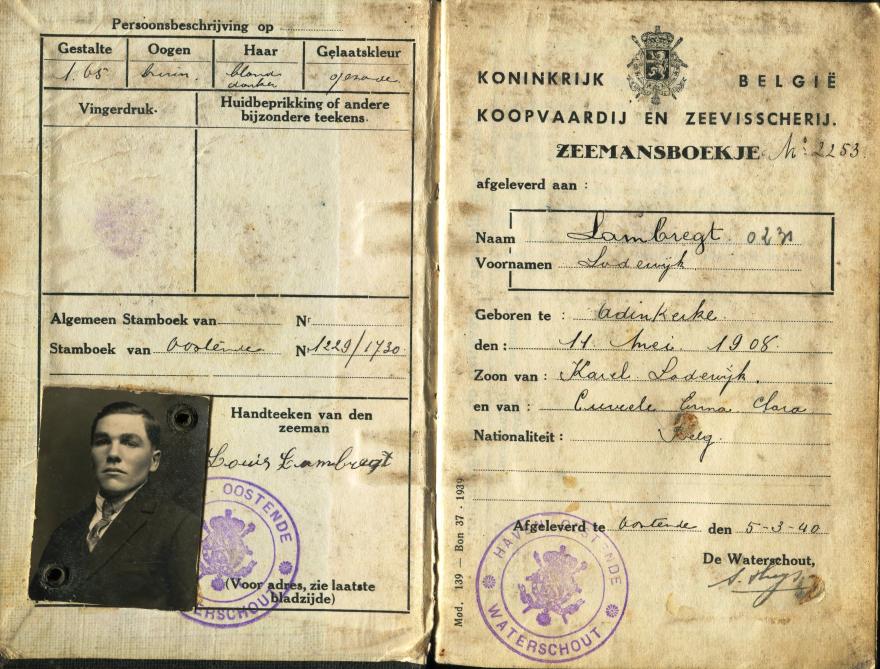 Persoonsbeschrijving op
Gestalte Oogen Haar Gelaatskleur
1.65 bruin. blond donker gezonde
Vingerdruk. Huidbeprikking of andere bijzondere teekens.
Algemeen Stamboek van Nr
Stamboek van Oostende Nr 1229/1730
Handteeken van den zeeman
Louis Lambregt
OOSTENDE
WATERSCHOUT
(Voor adres, zie laatste bladzijde)
KONINKRIJK BELGIË
KOOPVAARDIJ EN ZEEVISSCHERIJ.
ZEEMANSBOEKJE Nr 2253
afgeleverd aan :
Naam Lambregt
Voornamen Lodewijk
Geboren te : Adinkerke
den : 11 Mei 1908
Zoon van : Karel Lodewijk.
en van : Clara
Nationaliteit : Belg.
Afgeleverd te Oostende den 5-3-40
De Waterschout,
HAVEN OOSTENDE
WATERSCHOUT
Mod. 139 — Bon 37 - 1939